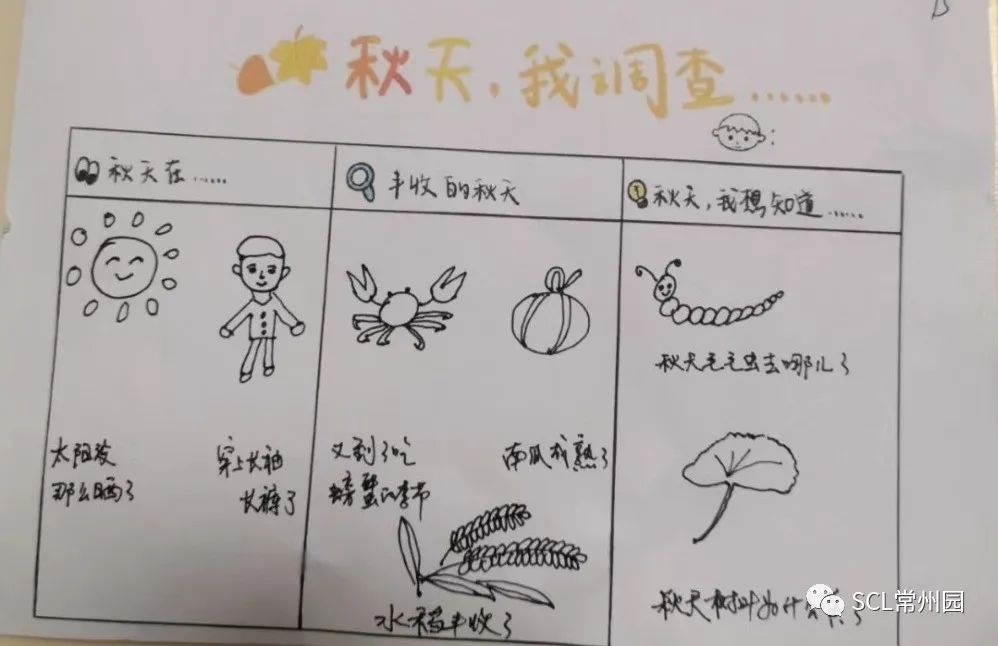 秋天，我调查……
秋天在……
太阳没
那么晒了
穿上长袖
长裤了
丰收的秋天
又到了吃
螃蟹的季节
南瓜成熟了
水稻丰收了
秋天，我想知道……
秋天毛毛虫去哪儿了
秋天树叶为什
SCL常州园